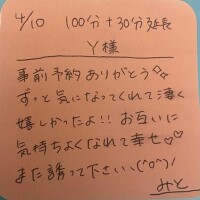 4/10 100分+30分延長
Y様
事前予約ありがとう✨
ずっと気になってくれてて凄く
嬉しかったよ!!お互いに
気持ちよくなれて幸せ♡♡
また誘って下さいヽ(^o^)ノ
みと